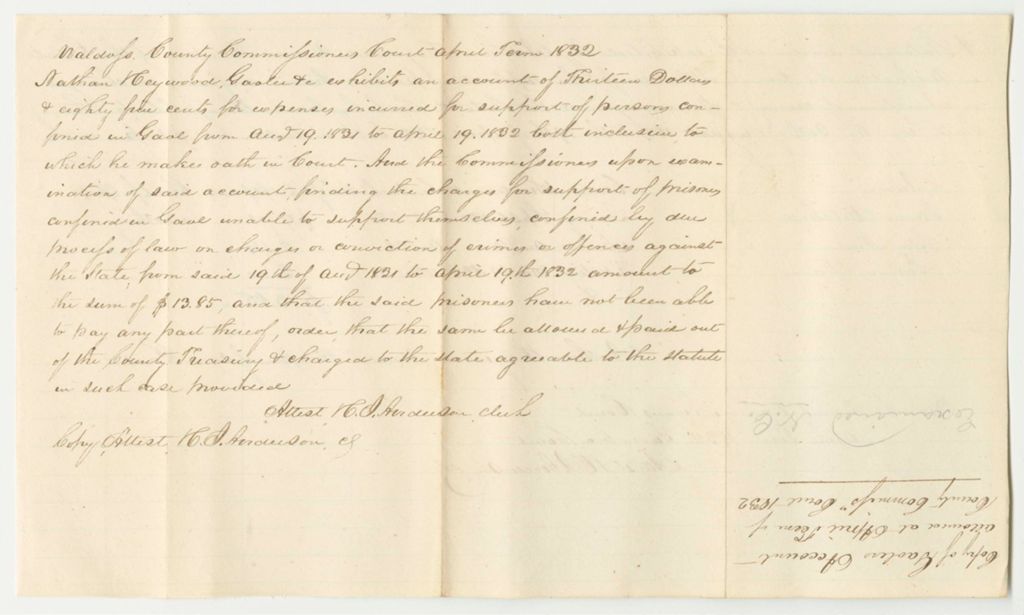 Waldo ss. County Commissioners Court April Term 1832
Nathan Heywood, Gaoler &c exhibits an account of Thirteen Dollars
& eighty five cents for expenses incurred for support of persons con-
fined in Gaol from Augt 19. 1831 to April 19. 1832 both inclusive to
which he makes oath in Court. And the Commissioners upon exam-
ination of said account, finding the charges for support of prisoners
confined in Gaol unable to support themselves, confined by due
process of law on charges or conviction of crimes or offences against
the State, from said 19th of Augt 1831 to April 19th 1832 amount to
the sum of $13.85, and that the said prisoners have not been able
to pay any part thereof, order, that the same be allowed & paid out
of the County Treasury & charged to the State agreeable to the statute
in such case provided
Attest H. J. Anderson Clerk
Copy Attest, H. J. Anderson, Cl
Examined
Copy of Gaolers Account
allowed at April Term of
County Commiss. Court 1832